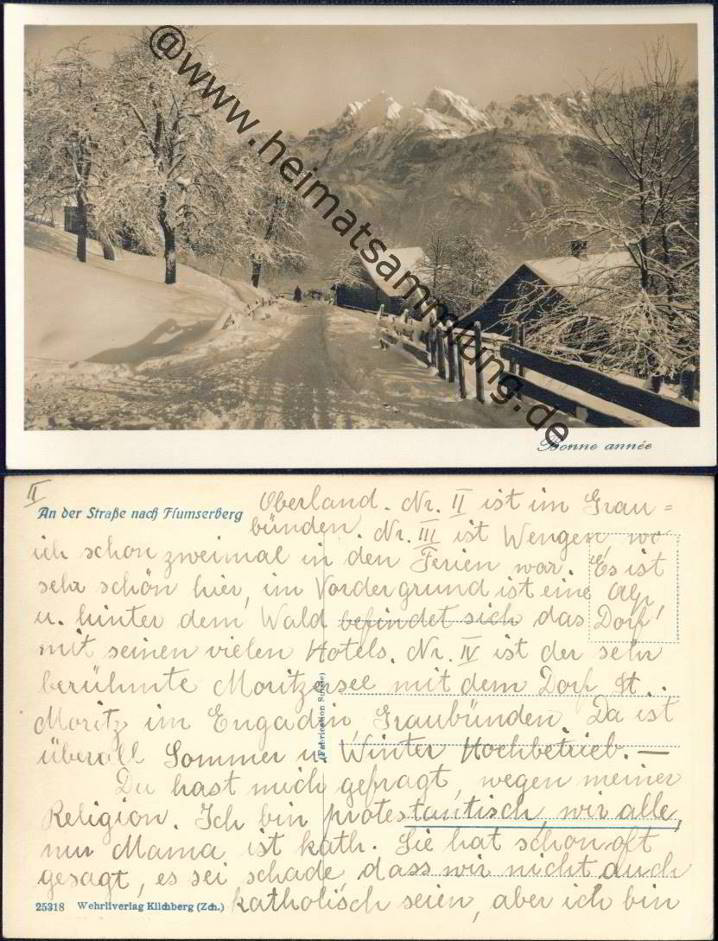 @www.heimatsammlung.de
Bonne année
II
An der Straße nach Flumserberg
Oberland. Nr. II ist im Grau=
bünden. Nr. III ist Wengen wo
ich schon zweimal in den Ferien war. Es ist
sehr schön hier, im Vordergrund ist eine Alp
u. hinter dem Wald befindet sich das Dorf!
mit seinen vielen Hotels. Nr. IV ist der sehr
berühmte Moritzersee mit dem Dorf St.
Moritz im Engadin, Graubünden. Da ist
überall Sommer u. Winter Hochbetrieb. —
Du hast mich gefragt, wegen meiner
Religion. Ich bin protestantisch, wir alle,
nur Mama ist kath. Sie hat schon oft
gesagt, es sei schade dass wir nicht auch
katholisch seien, aber ich bin
(Fabrication Suisse)
25318 Wehrliverlag Kilchberg (Zch.)